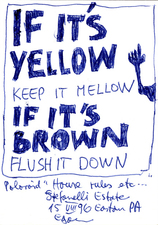 IF IT'S
YELLOW
KEEP IT MELLOW
IF IT'S
BROWN
FLUSH IT DOWN
Poloroid" House rules etc...
Stefanelli Estate
15 VIII 96 Easton PA